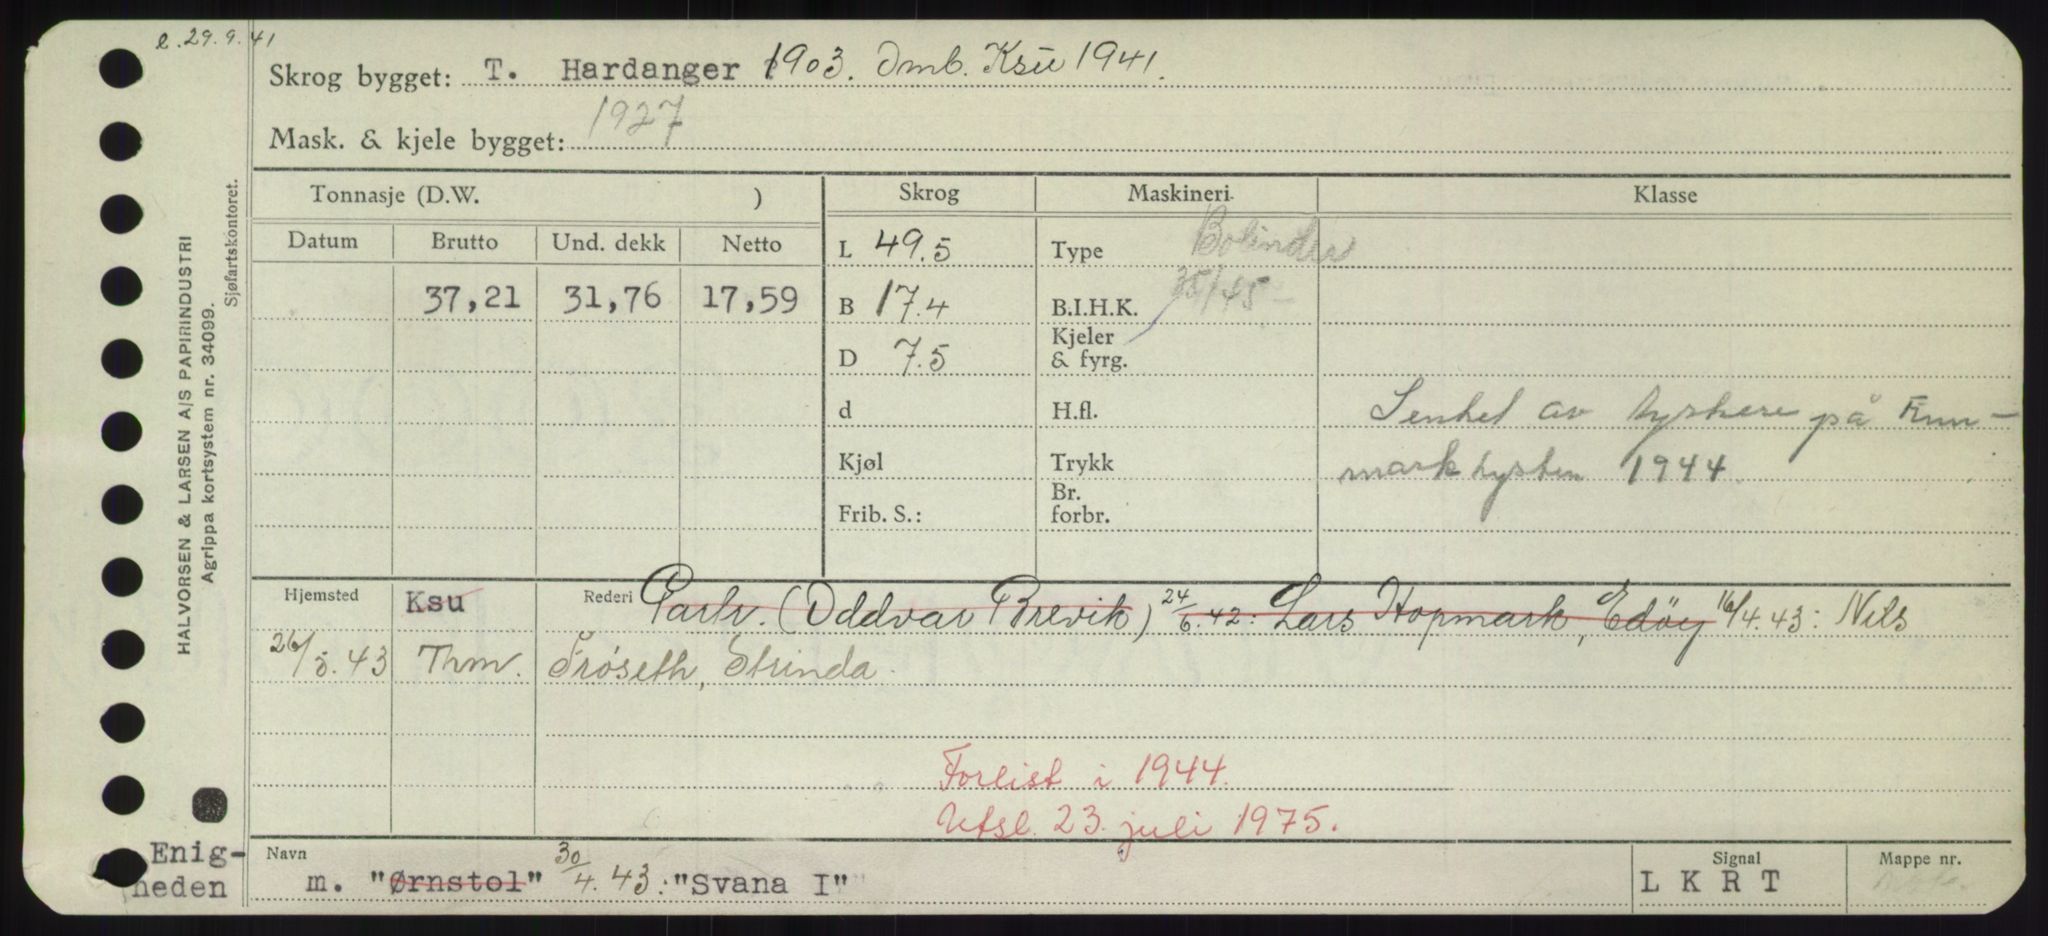 e. 29.9.41
Skrog bygget: T. Hardanger 1903. Omb. Ksu 1941.
Mask. & kjele bygget: 1927
HALVORSEN & LARSEN A/S PAPIRINDUSTRI
Agrippa kortsystem nr. 34099.
Sjøfartskontoret.
Tonnasje (D.W. ) Skrog Maskineri Klasse
Datum Brutto Und. dekk Netto L 49.5 Type Bolinder
37,21 31,76 17,59 B 17.4 B.I.H.K. 35/45
D 7.5 Kjeler & fyrg.
d H.fl. Senket av tyskere på Finn-
Kjøl Trykk markkysten 1944.
Frib. S.: Br. forbr.
Hjemsted Ksu Rederi Partr. (Oddvar Brevik) 24/6.42: Lars Hopmark, Edöy 16/4.43: Nils
26/5.43 Thm. Fröseth, Strinda.
Forlist i 1944.
Utsl. 23. juli 1975.
Enig-
heden
Navn Signal Mappe nr.
m. "Ørnstol" 30/4.43: "Svana I" L K R T